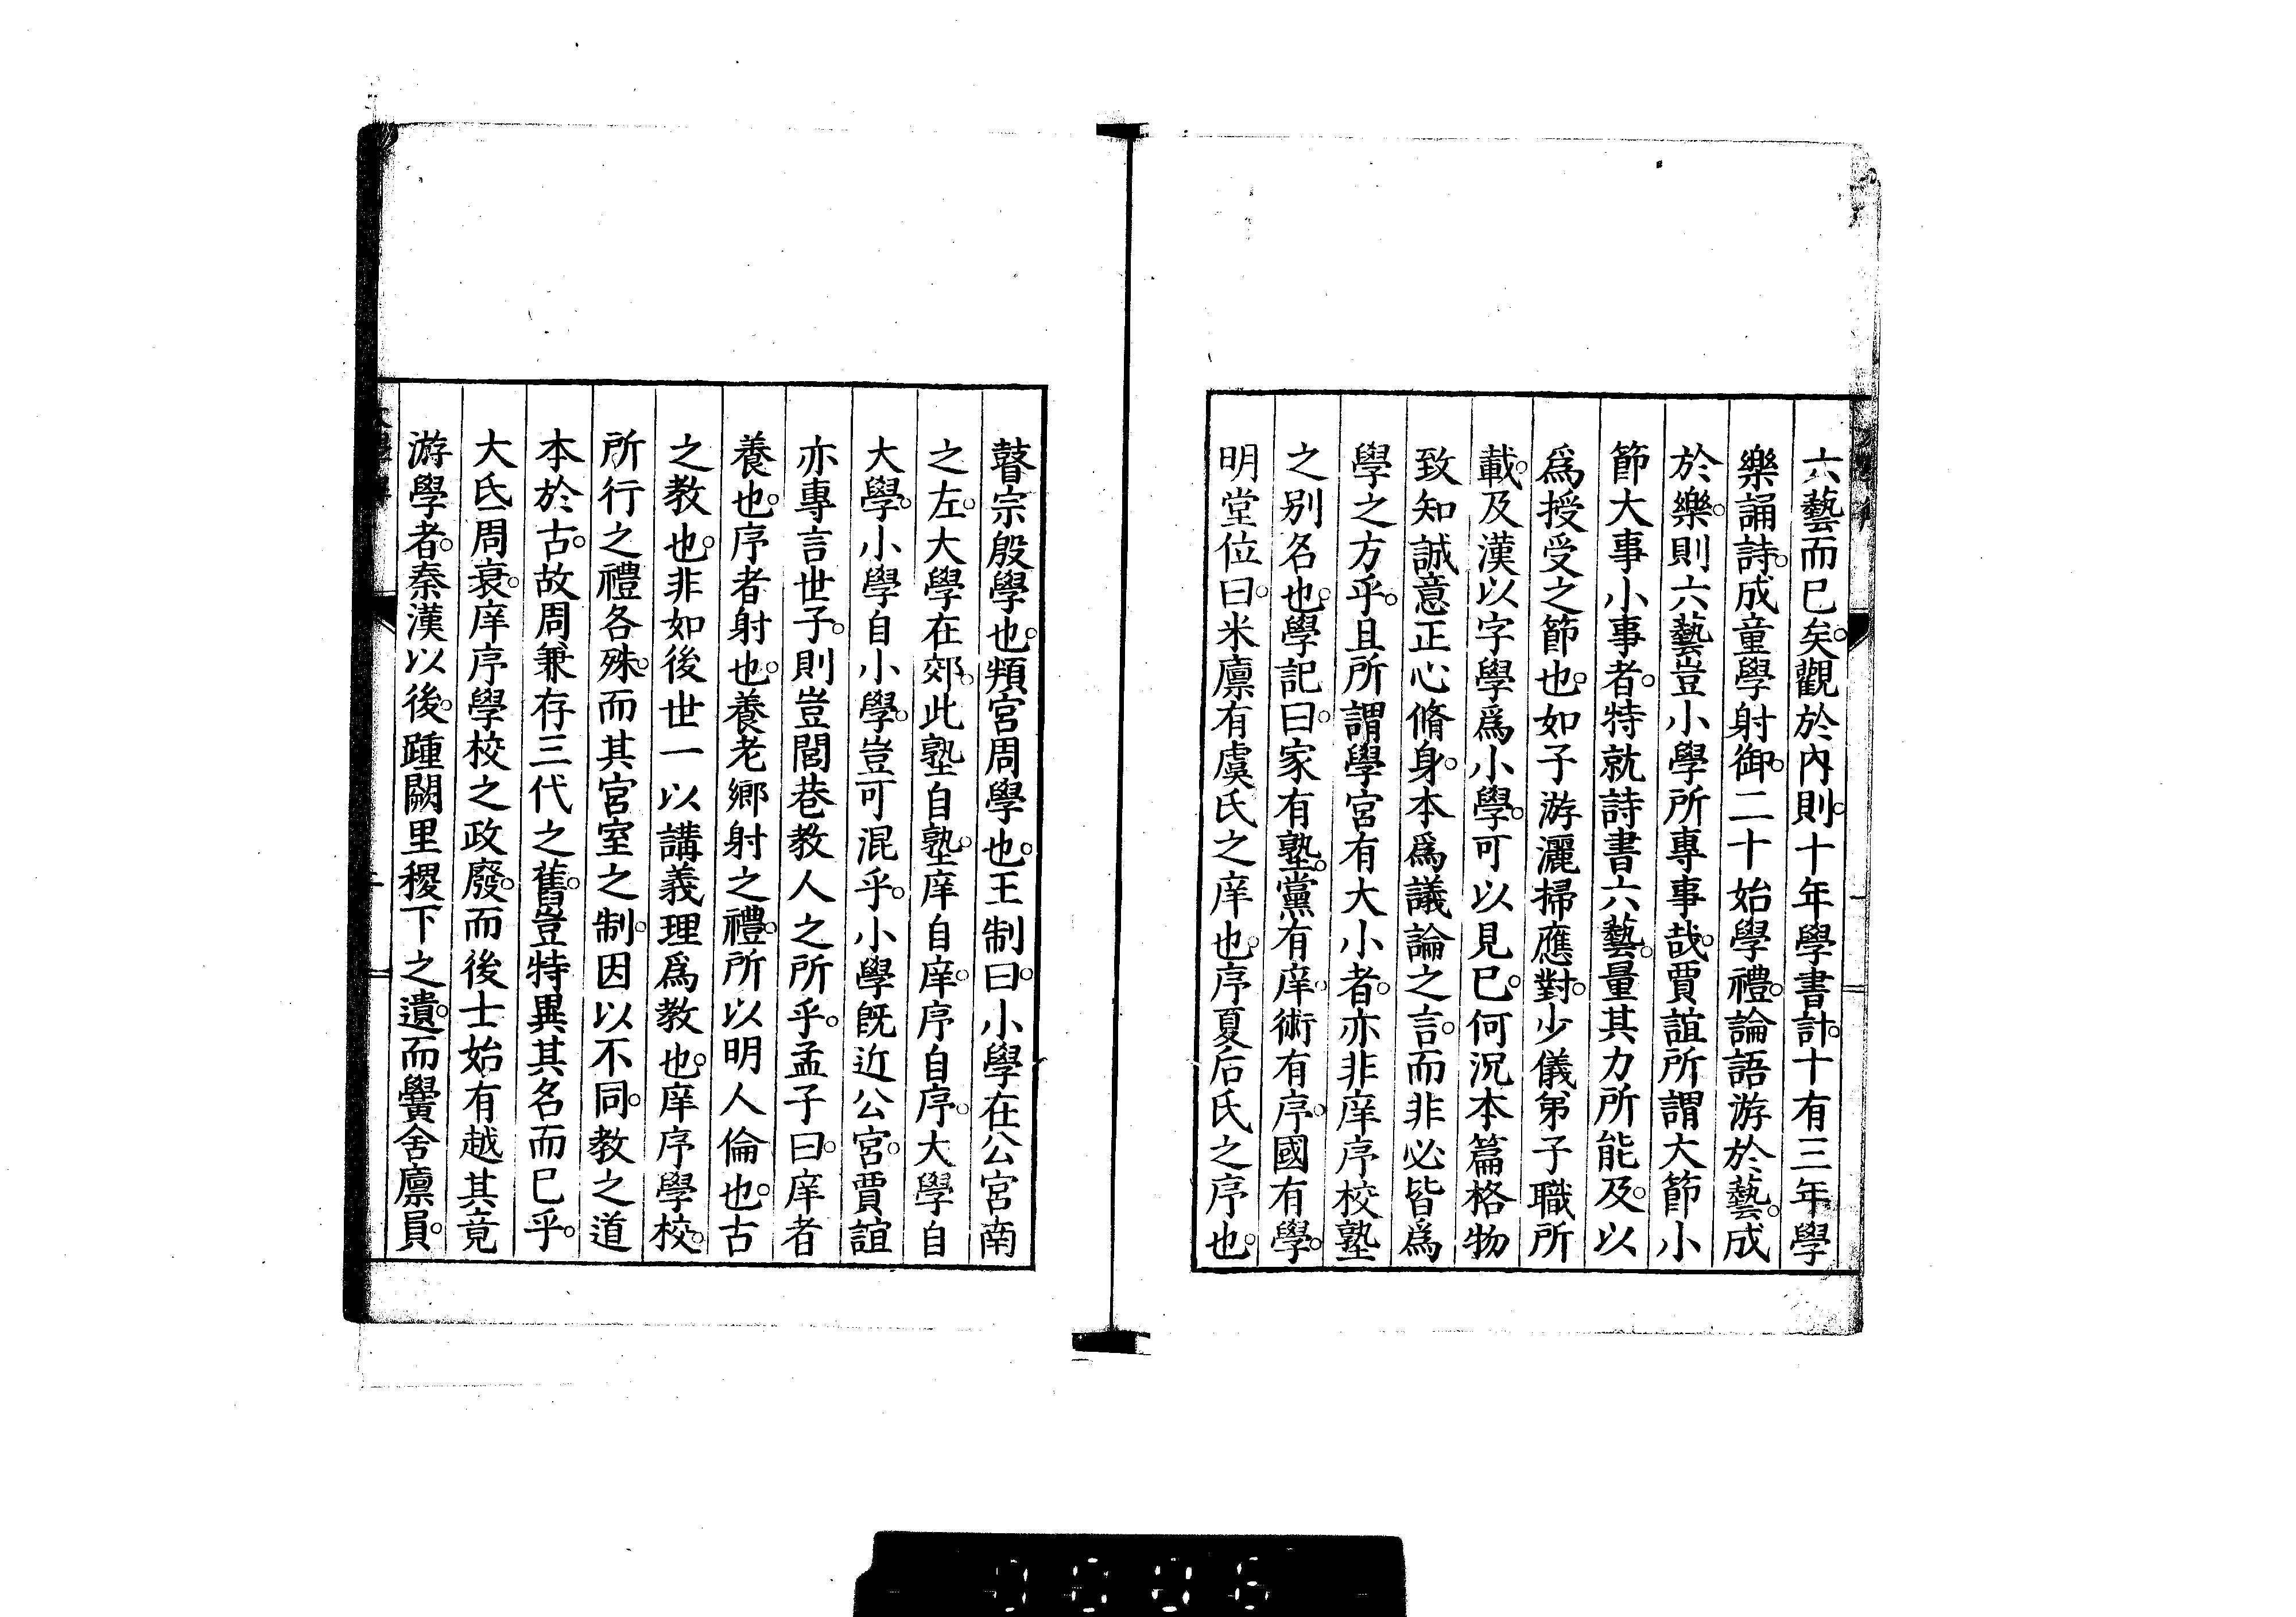 六藝而已矣。觀於內則。十年學書計。十有三年學
樂誦詩。成童學射御。二十始學禮。論語游於藝。成
於樂。則六藝豈小學所專事哉。賈誼所謂大節小
節大事小事者。特就詩書六藝。量其力所能及。以
爲授受之節也。如子游灑掃應對。少儀弟子職所
載。及漢以字學爲小學。可以見已。何況本篇格物
致知誠意正心脩身。本爲議論之言。而非必皆爲
學之方乎。且所謂學宮有大小者。亦非庠序校塾
之別名也。學記曰。家有塾。黨有庠。術有序。國有學。
明堂位曰。米廩有虞氏之庠也。序夏后氏之序也。
瞽宗殷學也。頖宮周學也。王制曰。小學在公宮南
之左。大學在郊。此塾自塾。庠自庠。序自序。大學自
大學。小學自小學。豈可混乎。小學既近公宮。賈誼
亦專言世子。則豈閭巷教人之所乎。孟子曰。庠者
養也。序者射也。養老鄉射之禮。所以明人倫也。古
之教也。非如後世一以講義理爲教也。庠序學校。
所行之禮各殊。而其宮室之制。因以不同。教之道
本於古。故周兼存三代之舊。豈特異其名而已乎。
大氐周衰。庠序學校之政廢。而後士始有越其竟
游學者。秦漢以後。踵闕里稷下之遺。而黌舍廩員。